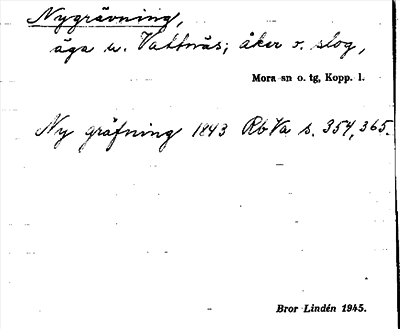 Nygrävning,
äga u. Vattnäs; åker o. slog,
Mora sn o. tg, Kopp. l.
Ny gräfning 1843 RbVa s. 354, 365.
Bror Lindén 1945.